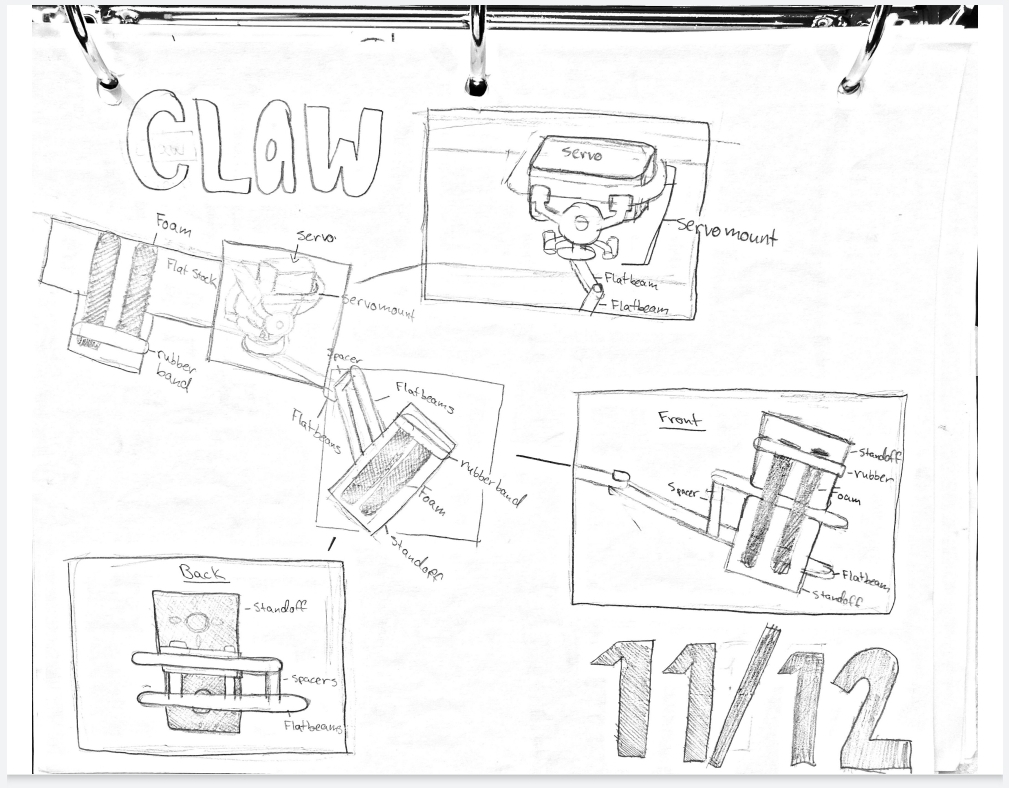 CLAW
servo
servomount
Flatbeam
Flatbeam
Foam
Flat Stock
servo
servomount
rubber
band
Spacer
Flatbeams
Flatbeams
rubberband
Foam
standoff
Front
standoff
rubber
Foam
Spacer
Flatbeam
Standoff
Back
Standoff
spacers
Flatbeams
11/12